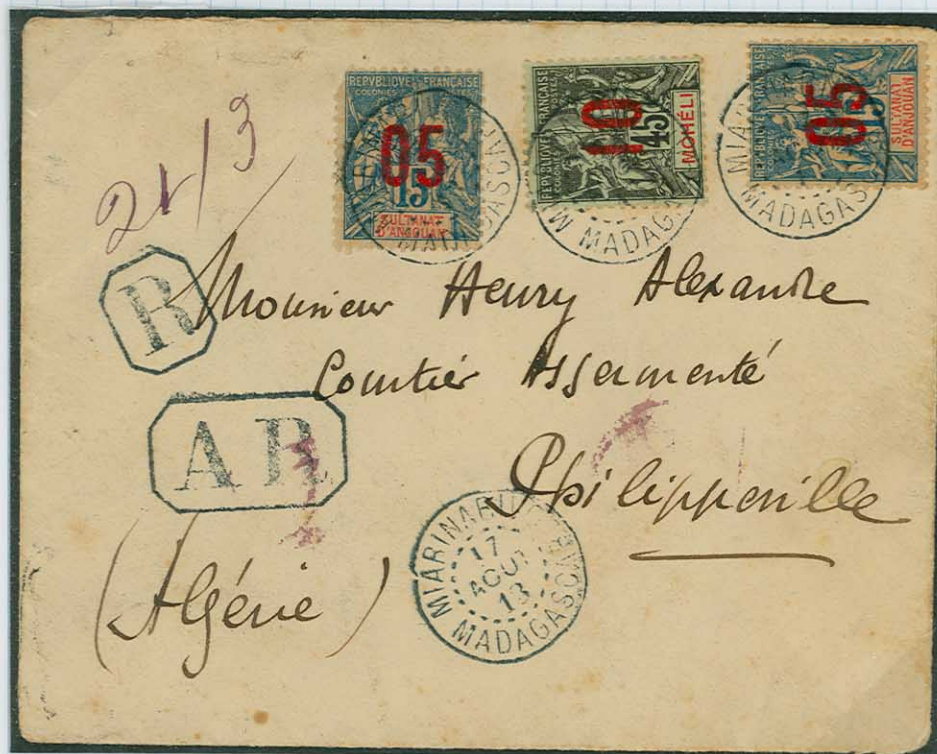 REPVBLIQVE FRANÇAISE
COLONIES
05
15
SULTANAT
D'ANJOUAN
MADAGASCAR
REPVBLIQVE FRANÇAISE
COLONIES POSTES
10
45
MOHÉLI
MADAGA
REPVBLIQVE FRANÇAISE
COLONIES
05
15
SULTANAT
D'ANJOUAN
MIA
MADAGASC
R
Monsieur Henry Alexandre
Courtier Assermenté
A R
Philippeville
MIARINARIVO
17
AOUT
13
MADAGASCAR
(Algérie)